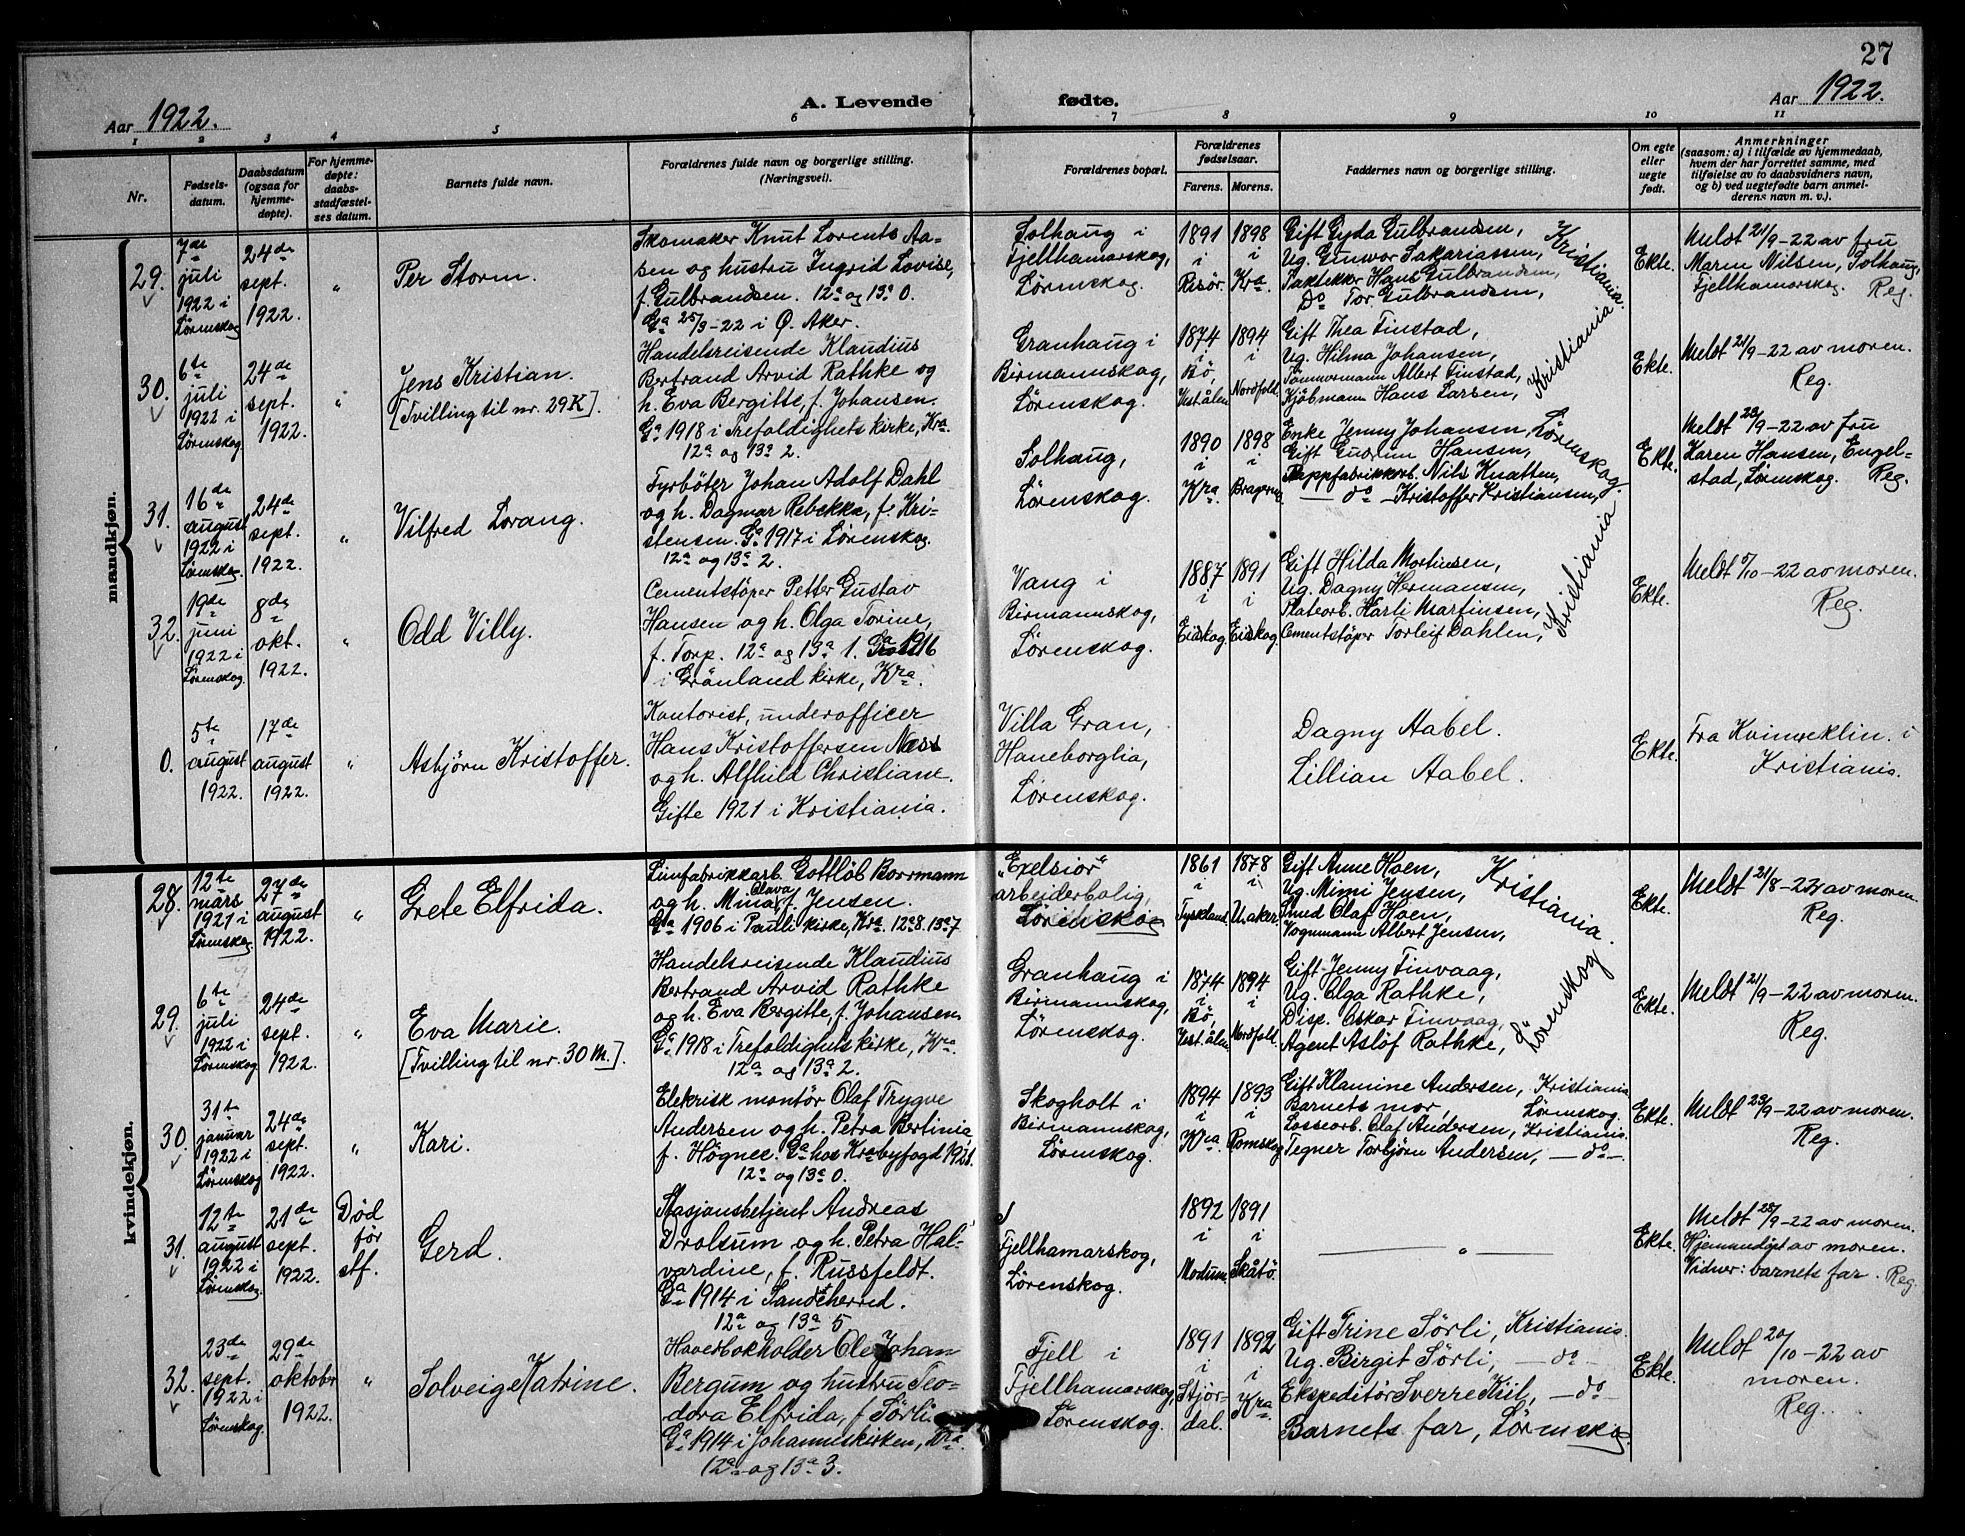 27
Aar 1922.
A. Levende fødte.
Aar 1922.
1 2 3 4 5 6 7 8 9 10 11
Nr.
Fødsels-
datum.
Daabsdatum
(ogsaa for
hjemme-
døpte).
For hjemme-
døpte:
daabs-
stadfæstel-
ses datum.
Barnets fulde navn.
Forældrenes fulde navn og borgerlige stilling.
(Næringsvei).
Forældrenes bopæl.
Forældrenes
fødselsaar.
Farens. Morens.
Faddernes navn og borgerlige stilling.
Om egte
eller
uegte
født.
Anmerkninger
(saasom: a) i tilfælde av hjemmedaab,
hvem der har forrettet samme, med
tilføielse av to daabsvidners navn,
og b) ved uegtefødte barn anmel-
derens navn m. v.).
mandkjøn.
29.
7de
juli
1922 i
Lørenskog
24de
sept.
1922.
"
Per Storm.
Skomaker Knut Lorents Aa-
sen og hustru Ingrid Lovise,
f. Gulbrandsen. 12a og 13a 0.
Ga 25/3-22 i Ø. Aker.
Solhaug i
Fjellhamarskog,
Lørenskog.
1891
i
Risör.
1898
i
Kra.
Gift Gyda Gulbrandsen,
Ug. Gunvor Sakariassen,
Taktekker Hans Gulbrandsen,
Do Tor Gulbrandsen,
Kristiania.
Ekte.
Meldt 21/9-22 av fru
Maren Nilsen, Solhaug,
Fjellhamarskog. Reg.
30.
6te
juli
1922 i
Lørenskog
24de
sept.
1922.
"
Jens Kristian.
[Tvilling til nr. 29 K].
Handelsreisende Klaudius
Bertrand Arvid Rathke og
h. Eva Bergitte, f. Johansen.
Ga 1918 i Trefoldighets kirke, Kra.
12a og 13a 2.
Granhaug i
Birmannskog,
Lørenskog.
1874
i
Bö,
Vesterålen
1894
i
Nordfold.
Gift Thea Finstad,
Ug. Hilma Johansen,
Tömmermann Albert Finstad,
Kjöbmann Hans Larsen,
Kristiania
Ekte.
Meldt 21/9-22 av moren.
Reg.
31.
16de
august
1922 i
Lørenskog.
24de
sept.
1922.
"
Vilfred Lorang.
Fyrböter Johan Adolf Dahl
og h. Dagmar Rebekka, f. Kri-
stensen. Ga 1917 i Lørenskog.
12a og 13a 2.
Solhaug,
Lørenskog.
1890
i
Kra.
1898
i
Bragernes
Enke Jenny Johansen,
Gift Gudrun Hansen,
Pappfabrikkarb. Nils Knatten,
— do — Kristoffer Kristiansen,
Lørenskog.
Ekte.
Meldt 23/9-22 av fru
Karen Hansen, Engel-
stad, Lørenskog. Reg.
32.
19de
juni
1922 i
Lørenskog.
8de
okt.
1922.
"
Odd Villy.
Cementstöper Petter Gustav
Hansen og h. Olga Torine,
f. Torp. 12a og 13a 1. Ga 1916
i Grönland kirke, Kra.
Vang i
Birmannskog,
Lørenskog.
1887
i
Eidskog
1891
i
Eidskog.
Gift Hilda Martinsen,
Ug. Dagny Hermansen,
Platearb. Harli Martinsen,
Cementstöper Torleif Dahlen,
Kristiania
Ekte.
Meldt 5/10-22 av moren.
Reg.
0.
5te
august
1922.
17de
august
1922.
"
Asbjörn Kristoffer.
Kontorist, underofficer
Hans Kristoffersen Næss
og h. Alfhild Christiane.
Gifte 1921 i Kristiania.
Villa Gran,
Haneborglia,
Lørenskog.
Dagny Aabel.
Lillian Aabel.
Ekte.
Fra Kvinneklin. i
Kristiania.
kvindekjøn.
28.
12te
mars
1921 i
Lørenskog.
27de
august
1922.
"
Grete Elfrida.
Limfabrikkarb. Gottlöb Borrmann
og h. Mina Olava, f. Jensen.
Ga 1906 i Pauli kirke, Kra. 12a 8. 13a 7
"Exelsior"
arbeiderbolig,
Lørenskog
1861
i
Tyskland.
1878
i
U. aker.
Gift Anne Hoen,
Ug. Mimi Jensen,
Smed Olaf Hoen,
Vognmann Albert Jensen,
Kristiania.
Ekte.
Meldt 21/8-22 av moren.
Reg.
29.
6te
juli
1922 i
Lørenskog
24de
sept.
1922.
"
Eva Marie.
[Tvilling til nr. 30 M.].
Handelsreisende Klaudius
Bertrand Arvid Rathke
og h. Eva Bergitte, f. Johansen.
Ga 1918 i Trefoldighets kirke, Kra.
12a og 13a 2.
Granhaug i
Birmannskog,
Lørenskog.
1874
i
Bö,
Vesterålen
1894
i
Nordfold.
Gift Jenny Finvaag,
Ug. Olga Rathke,
Disp. Oskar Finvaag,
Agent Aslöf Rathke,
Lörenskog
Ekte.
Meldt 21/9-22 av moren.
Reg.
30.
31te
januar
1922 i
Lørenskog
24de
sept.
1922.
"
Kari.
Elekrisk montör Olaf Trygve
Andersen og h. Petra Bertinia,
f. Högnee. Ga hos Kra byfogd 1921.
12a og 13a 0.
Skogholt i
Birmannskog,
Lørenskog.
1894
i
Kra.
1893
i
Romskog
Gift Klamine Andersen, Kristiania
Barnets mor, Lørenskog.
Losseorb. Olaf Andersen, Kristiania.
Tegner Torbjörn Andersen, — do —.
Ekte.
Meldt 23/9-22 av moren.
Reg.
31.
12te
august
1922 i
Lørenskog.
21de
sept.
1922.
Död
før
stf.
Gerd.
Stasjonsbetjent Andreas
Drolsum og h. Petra Hal-
vardine, f. Russfeldt.
Ga 1914 i Sandeherred.
12a og 13a 5
Fjellhamarskog,
Lørenskog.
1892
i
Modum.
1891
i
Skåtö.
— " —
Ekte.
Meldt 28/9-22 av moren.
Hjemmedöpt av moren.
Vidner: barnets far. Reg.
32.
23de
sept.
1922 i
Lørenskog.
29de
oktober
1922.
"
Solveig Katrine.
Hovedbokholder Ole Johan
Bergum og hustru Teo-
dora Elfrida, f. Sörli.
Ga 1914 i Johanneskirken, Kra.
12a og 13a 3.
Fjell i
Fjellhamarskog,
Lørenskog.
1891
i
Stjör-
dal.
1892
i
Kra.
Gift Trine Sörli, Kristiania.
Ug. Birgit Sörli, — do —
Ekspeditör Sverre Kiil, — do —
Barnets far, Lörenskog.
Ekte.
Meldt 20/10-22 av
moren.
Reg.